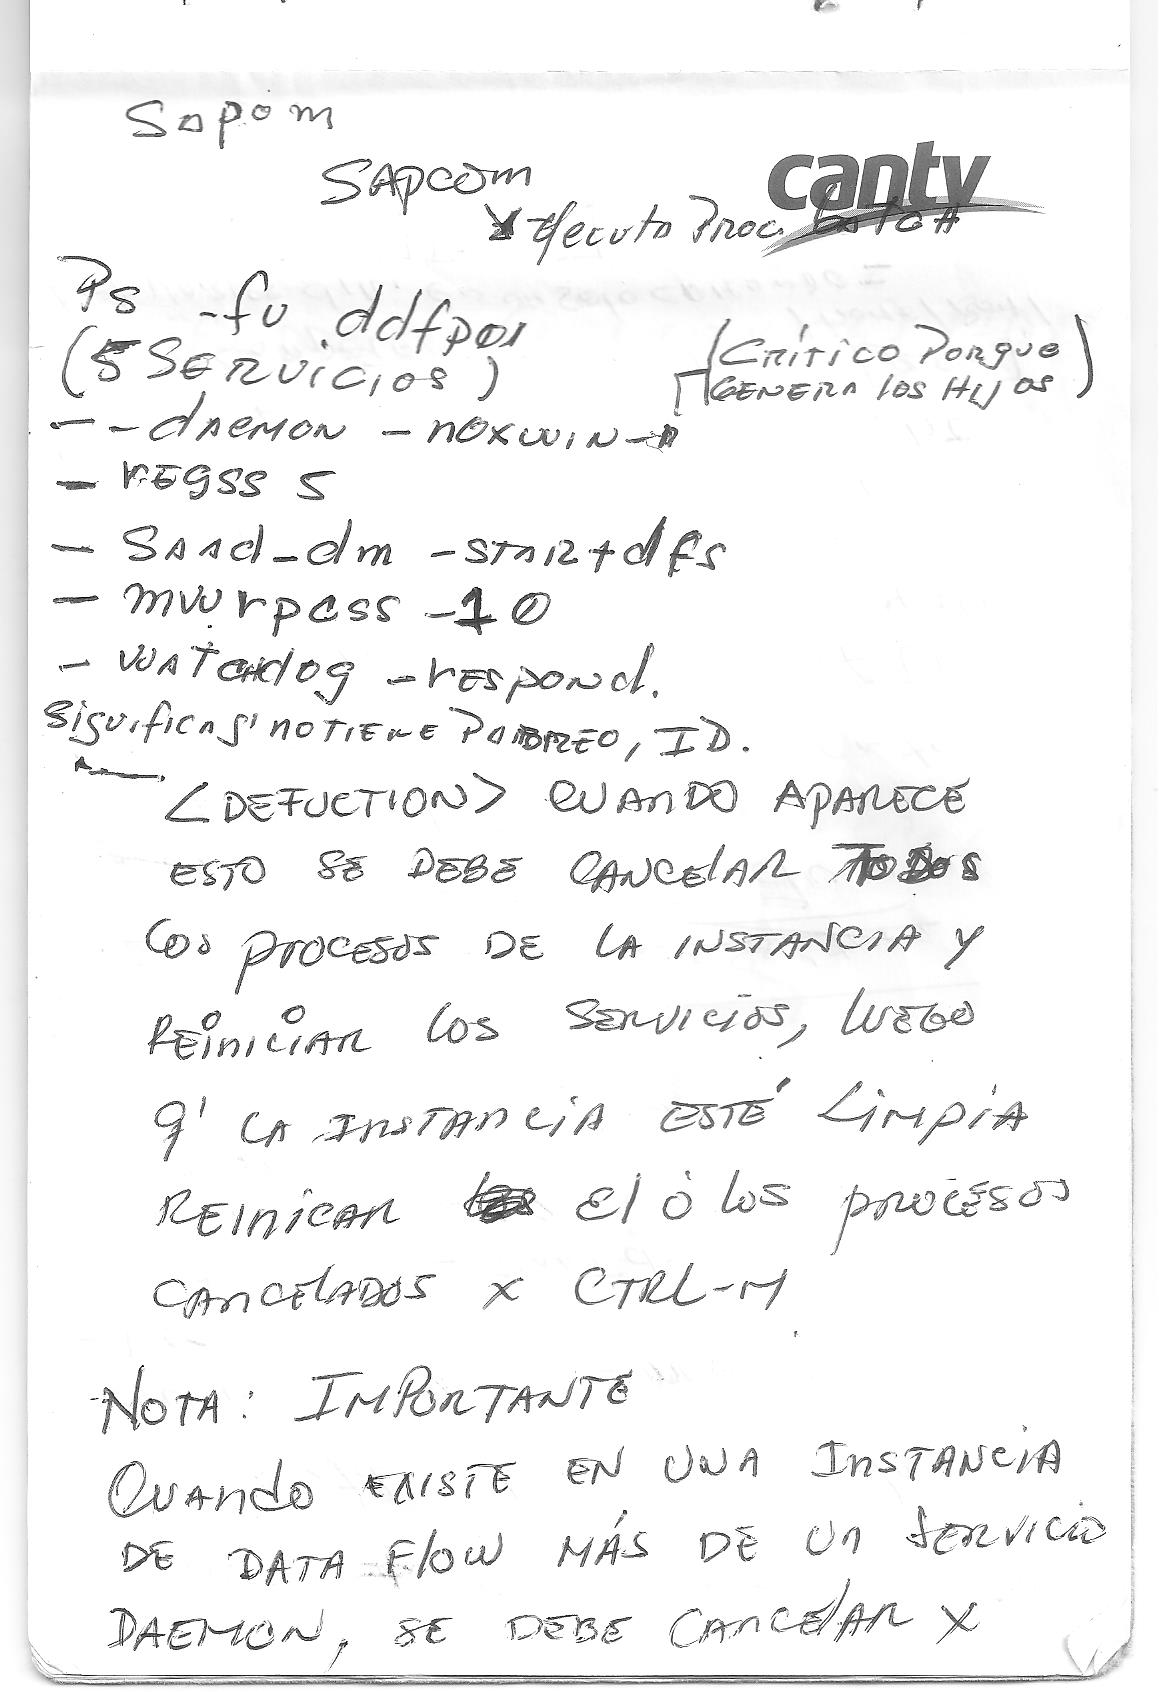 Sapom
SAPCOM
cantv
Ejecuto Proc. batch
Ps -fu ddfp01
(5 SERVICIOS)
(CRÍTICO PORQUE
GENERA LOS HIJOS)
- - dAEMON - NOXWIN -A
- rEGSS 5
- SAAd_dm - START dfs
- mwrpcss -10
- WATCHdog - rESPONd.
Significa q' NO TIENE PADRE O, ID.
<DEFUCTION> CUANDO APARECE
ESTO SE DEBE CANCELAR TODOS
LOS PROCESOS DE LA INSTANCIA Y
REINICIAR LOS SERVICIOS, LUEGO
q' LA INSTANCIA ESTÉ LIMPIA
REINICAR El ó los PROCESOS
CANCELADOS x CTRL-M
NOTA: IMPORTANTE
CUANDO EXISTE EN UNA INSTANCIA
DE DATA FLOW MÁS DE UN SERVICIO
DAEMON, SE DEBE CANCELAR X